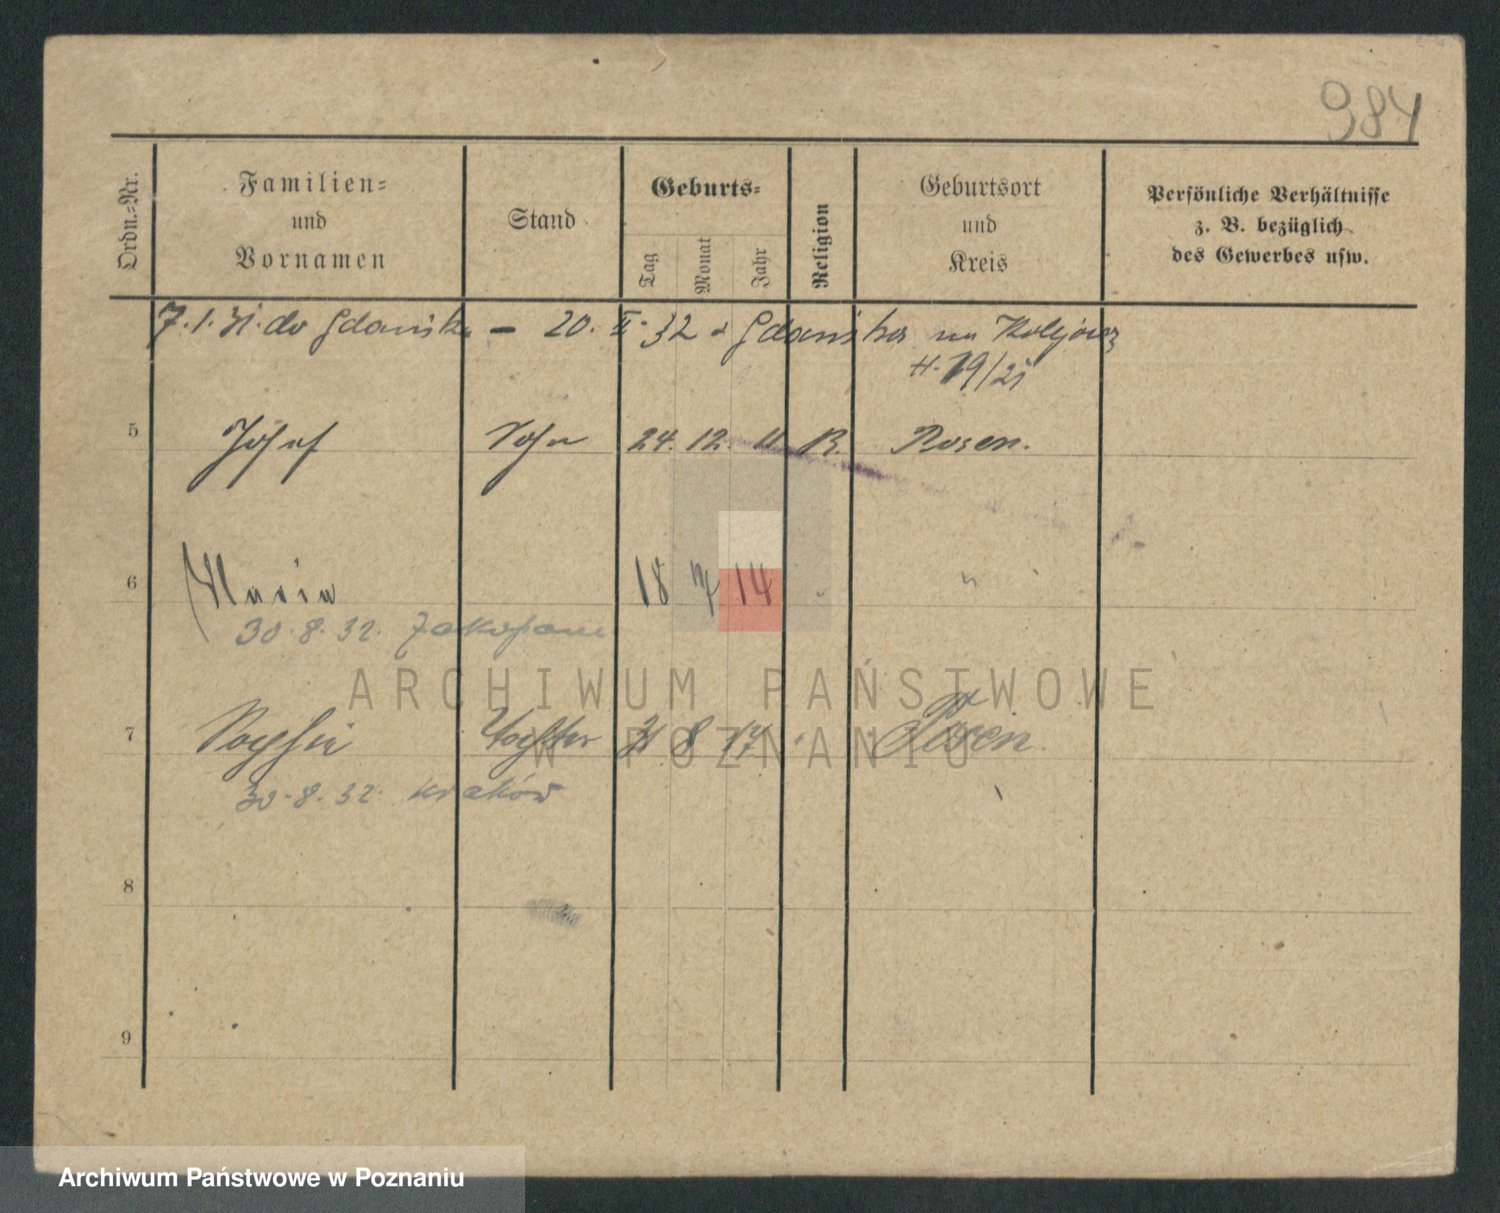 984
Ordn.=Nr.
Familien=
und
Vornamen
Stand
Geburts=
Tag
Monat
Jahr
Religion
Geburtsort
und
Kreis
Persönliche Verhältnisse
z. B. bezüglich
des Gewerbes usw.
7.1.31. do Gdańska – 20. II. 32 z Gdańska
19/21
5 Josef Sohn 24. 12. 11 Posen.
6 Maria 18 7 14 "
30.8.32. Zakopane
7 Tochter 8 17 Posen.
30.8.32. Kraków
8
9
ARCHIWUM PAŃSTWOWE
W POZNANIU
Archiwum Państwowe w Poznaniu